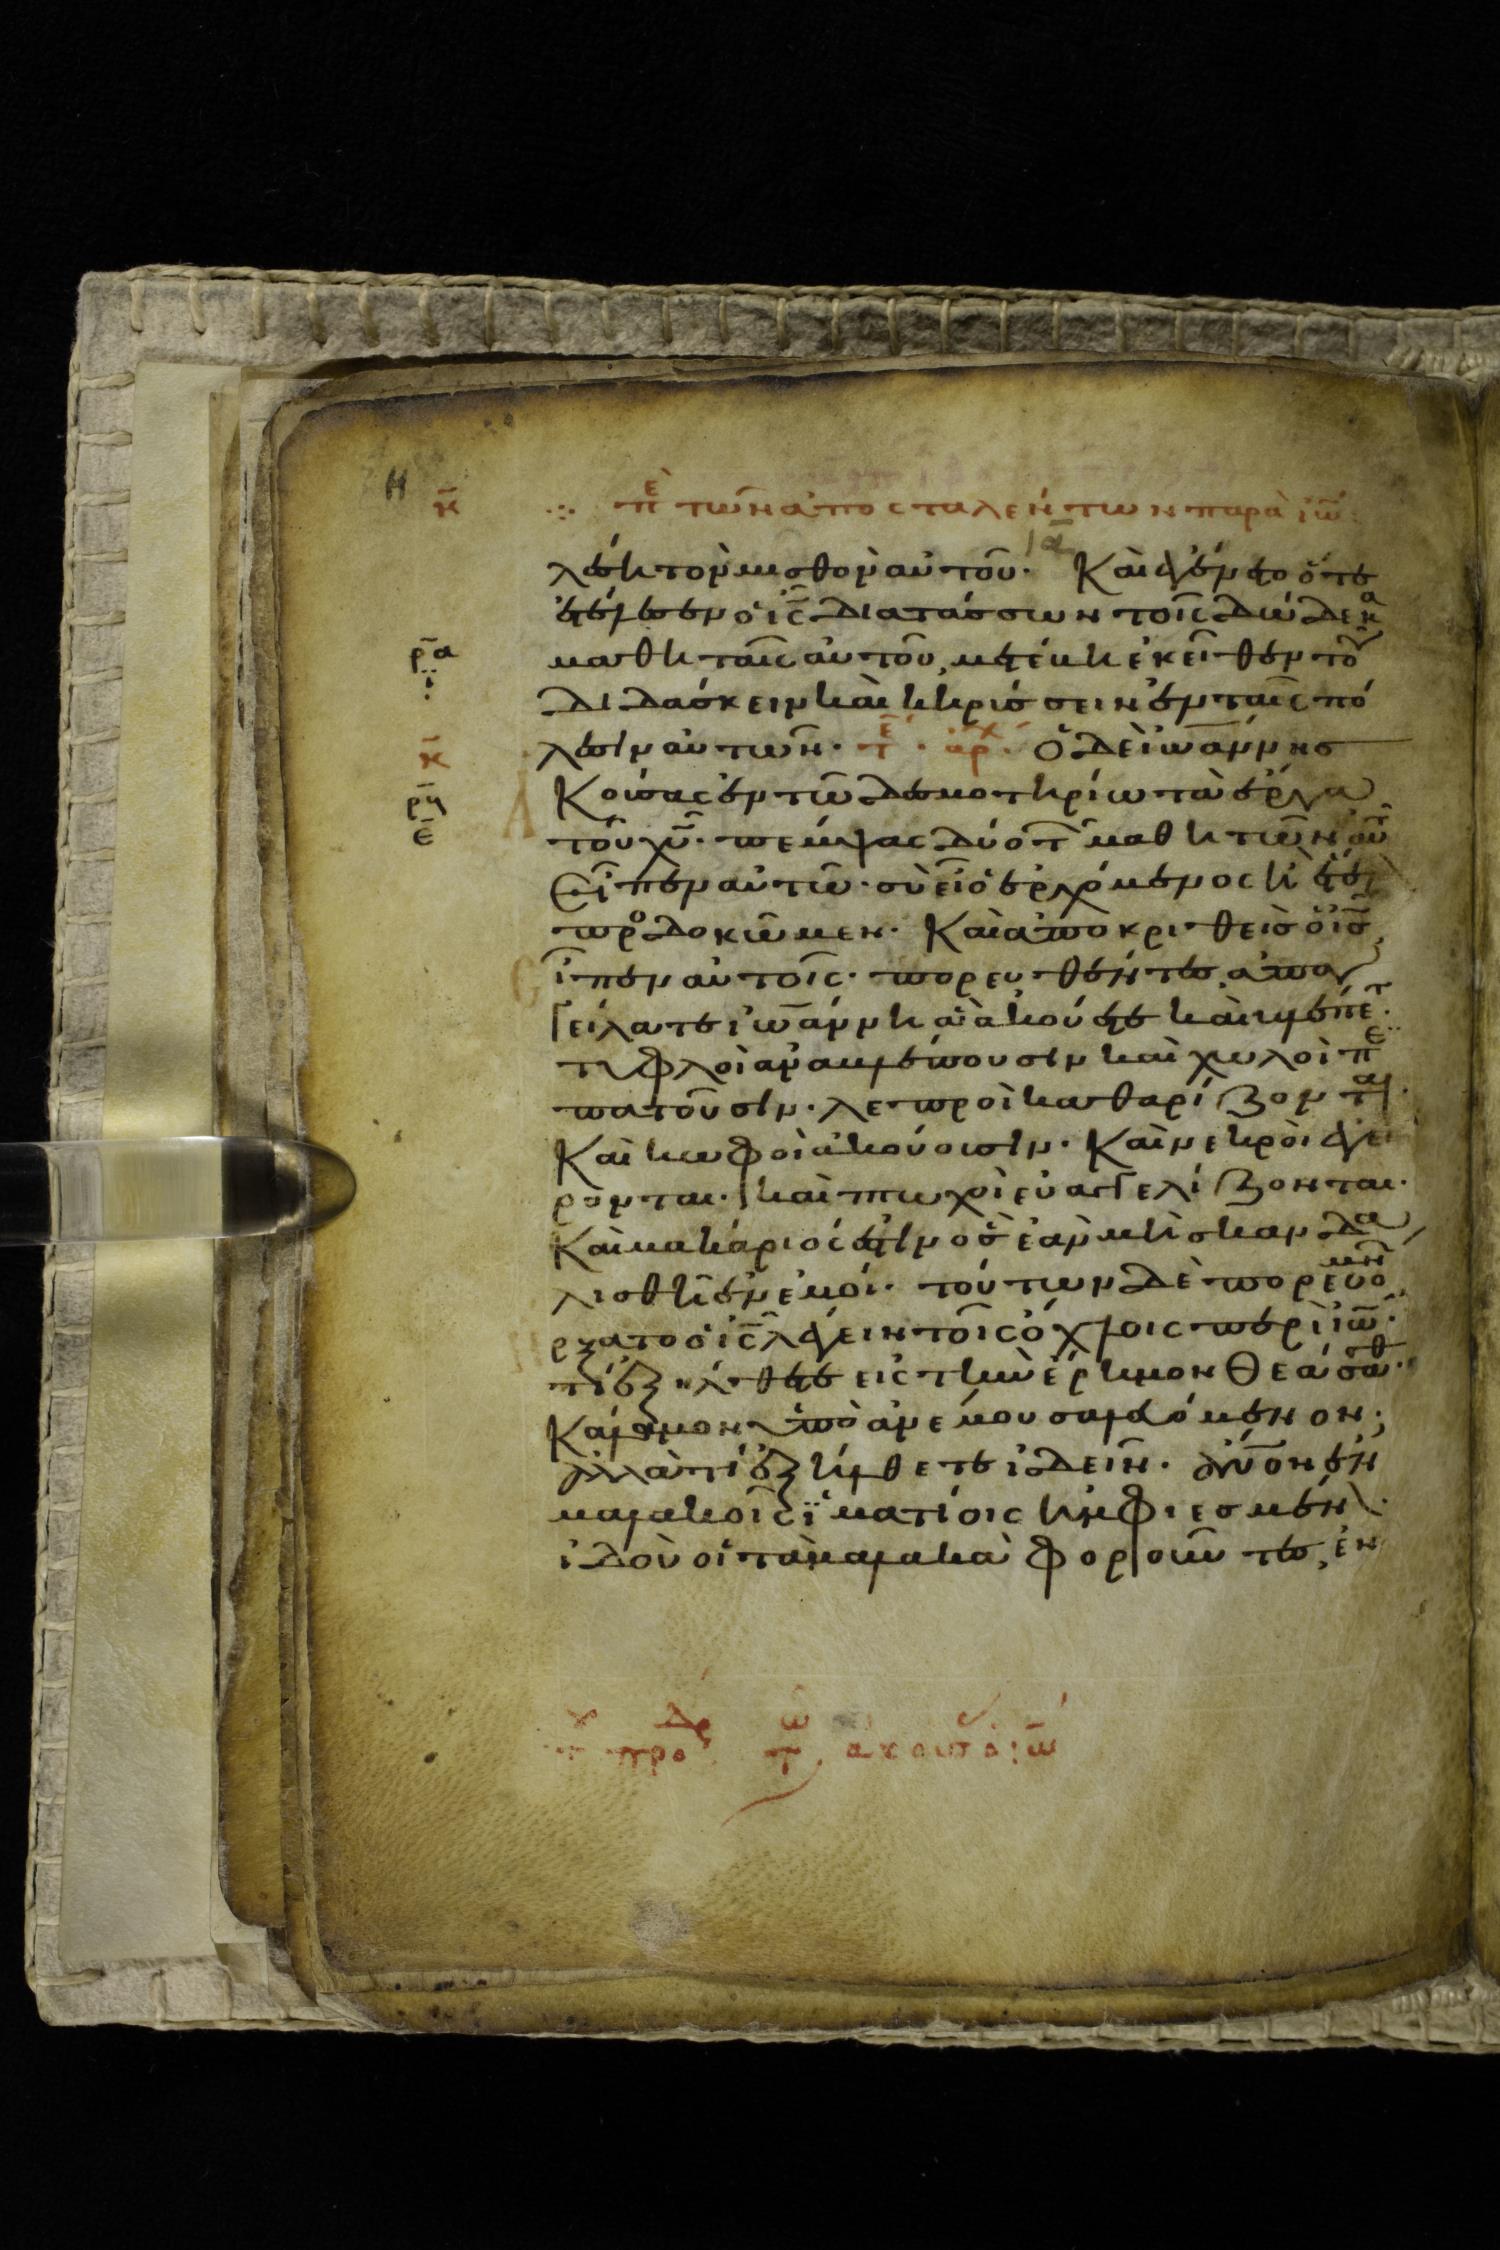 κ̄ ⁘ πὲ τῶν ἀποσταλέντων παρὰ ἰω̅
ια̅
λέσῃ τὸν μισθὸν αὐτοῦ. Καὶ ἐγένετο ὅτε
ἐτέλεσεν ὁ ις̅ διατάσσων τοῖς δώδεκα
μαθηταῖς αὐτοῦ, μετέβη ἐκεῖθεν τοῦ
διδάσκειν καὶ κηρύσσειν ἐν ταῖς πό
λεσιν αὐτῶν. τε̅. ἀρχ. Ὁ δὲ ἰωάννης
Ἀκούσας ἐν τῶ δεσμοτηρίω τὰ ἔργα
τοῦ χυ̅. πέμψας δύο τ̅ μαθητῶν αὐτ
Εἶπεν αὐτῶ. σὺ εἶ ὁ ἐρχόμενος ἢ ἕτερ
προσδοκῶμεν. Καὶ ἀποκριθεὶς ὁ ις̅
εἶπεν αὐτοῖς. πορευθέντες ἀπαγ
γείλατε ἰωάννη ἃ ἀκούετε καὶ βλέπετ.
τυφλοὶ ἀναβλέπουσιν καὶ χωλοὶ πε
πατοῦσιν. λεπροὶ καθαρίζονται.
Καὶ κωφοὶ ἀκούουσιν. Καὶ νεκροὶ ἐγεί
ρονται. καὶ πτωχοὶ εὐαγγελίζονται.
Καὶ μακάριός ἐστιν ὃς ἐὰν μὴ σκανδα
λισθῆ ἐν ἐμοί. τούτων δὲ πορευομέν
ἤρξατο ὁ ις̅ λέγειν τοῖς ὄχλοις περὶ ἰω̅.
τί ἐξήλθετε εἰς τὴν ἔρημον θεάσασθ.
Κάλαμον ὑπὸ ἀνέμου σαλευόμενον;
ἀλλὰ τί ἐξήλθετε ἰδεῖν. ἄνον ἐν
μαλακοῖς ἱματίοις ἠμφιεσμέν.
ἰδοὺ οἱ τὰ μαλακὰ φοροῦντες, ἐν
Η
ρ̅α
ϊ
κ̄
ρ̅β
ε̅
ἀκουσ ὁ ἰω̅